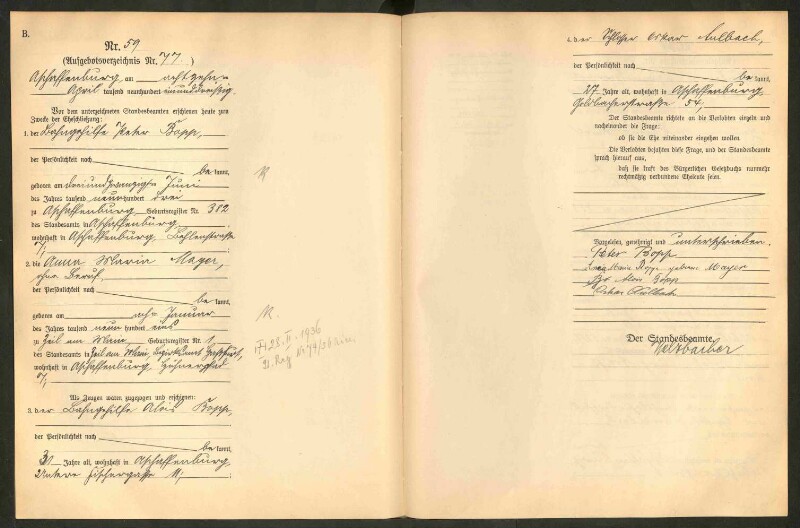 B.
Nr. 59
(Aufgebotsverzeichnis Nr. 77)
Aschaffenburg am achtzehn-
April tausend neunhundert neunundzwanzig.
Vor dem unterzeichneten Standesbeamten erschienen heute zum
Zwecke der Eheschließung:
1. der Bahngehilfe Peter Bopp,
der Persönlichkeit nach
be kannt,
geboren am dreiundzwanzigsten Juni
des Jahres tausend neunhundert drei
zu Aschaffenburg, Geburtsregister Nr. 382
des Standesamts in Aschaffenburg
wohnhaft in Aschaffenburg,
2. die Anna Maria Mayer,
ohne Beruf,
der Persönlichkeit nach
be kannt,
geboren am acht Januar
des Jahres tausend neunhundert eins
zu Zeil am Main, Geburtsregister Nr. 1
des Standesamts in Zeil am Main, Bezirksamt Haßfurt,
wohnhaft in Aschaffenburg,
Als Zeugen waren zugezogen und erschienen:
3. der Bahngehilfe Alois Bopp,
der Persönlichkeit nach
be kannt,
Jahre alt, wohnhaft in Aschaffenburg,
Untere Fischergasse 11;
28. II. 1936
4. der Schlosser Oskar Aulbach,
der Persönlichkeit nach
be kannt,
27 Jahre alt, wohnhaft in Aschaffenburg
Goldbacherstraße 54;
Der Standesbeamte richtete an die Verlobten einzeln und
nacheinander die Frage:
ob sie die Ehe miteinander eingehen wollen.
Die Verlobten bejahten diese Frage, und der Standesbeamte
sprach hierauf aus,
daß sie kraft des Bürgerlichen Gesetzbuchs nunmehr
rechtmäßig verbundene Eheleute seien.
Vorgelesen, genehmigt und unterschrieben.
Peter Bopp
Anna Maria Bopp geborene Mayer
Alois Bopp
Oskar Aulbach
Der Standesbeamte.